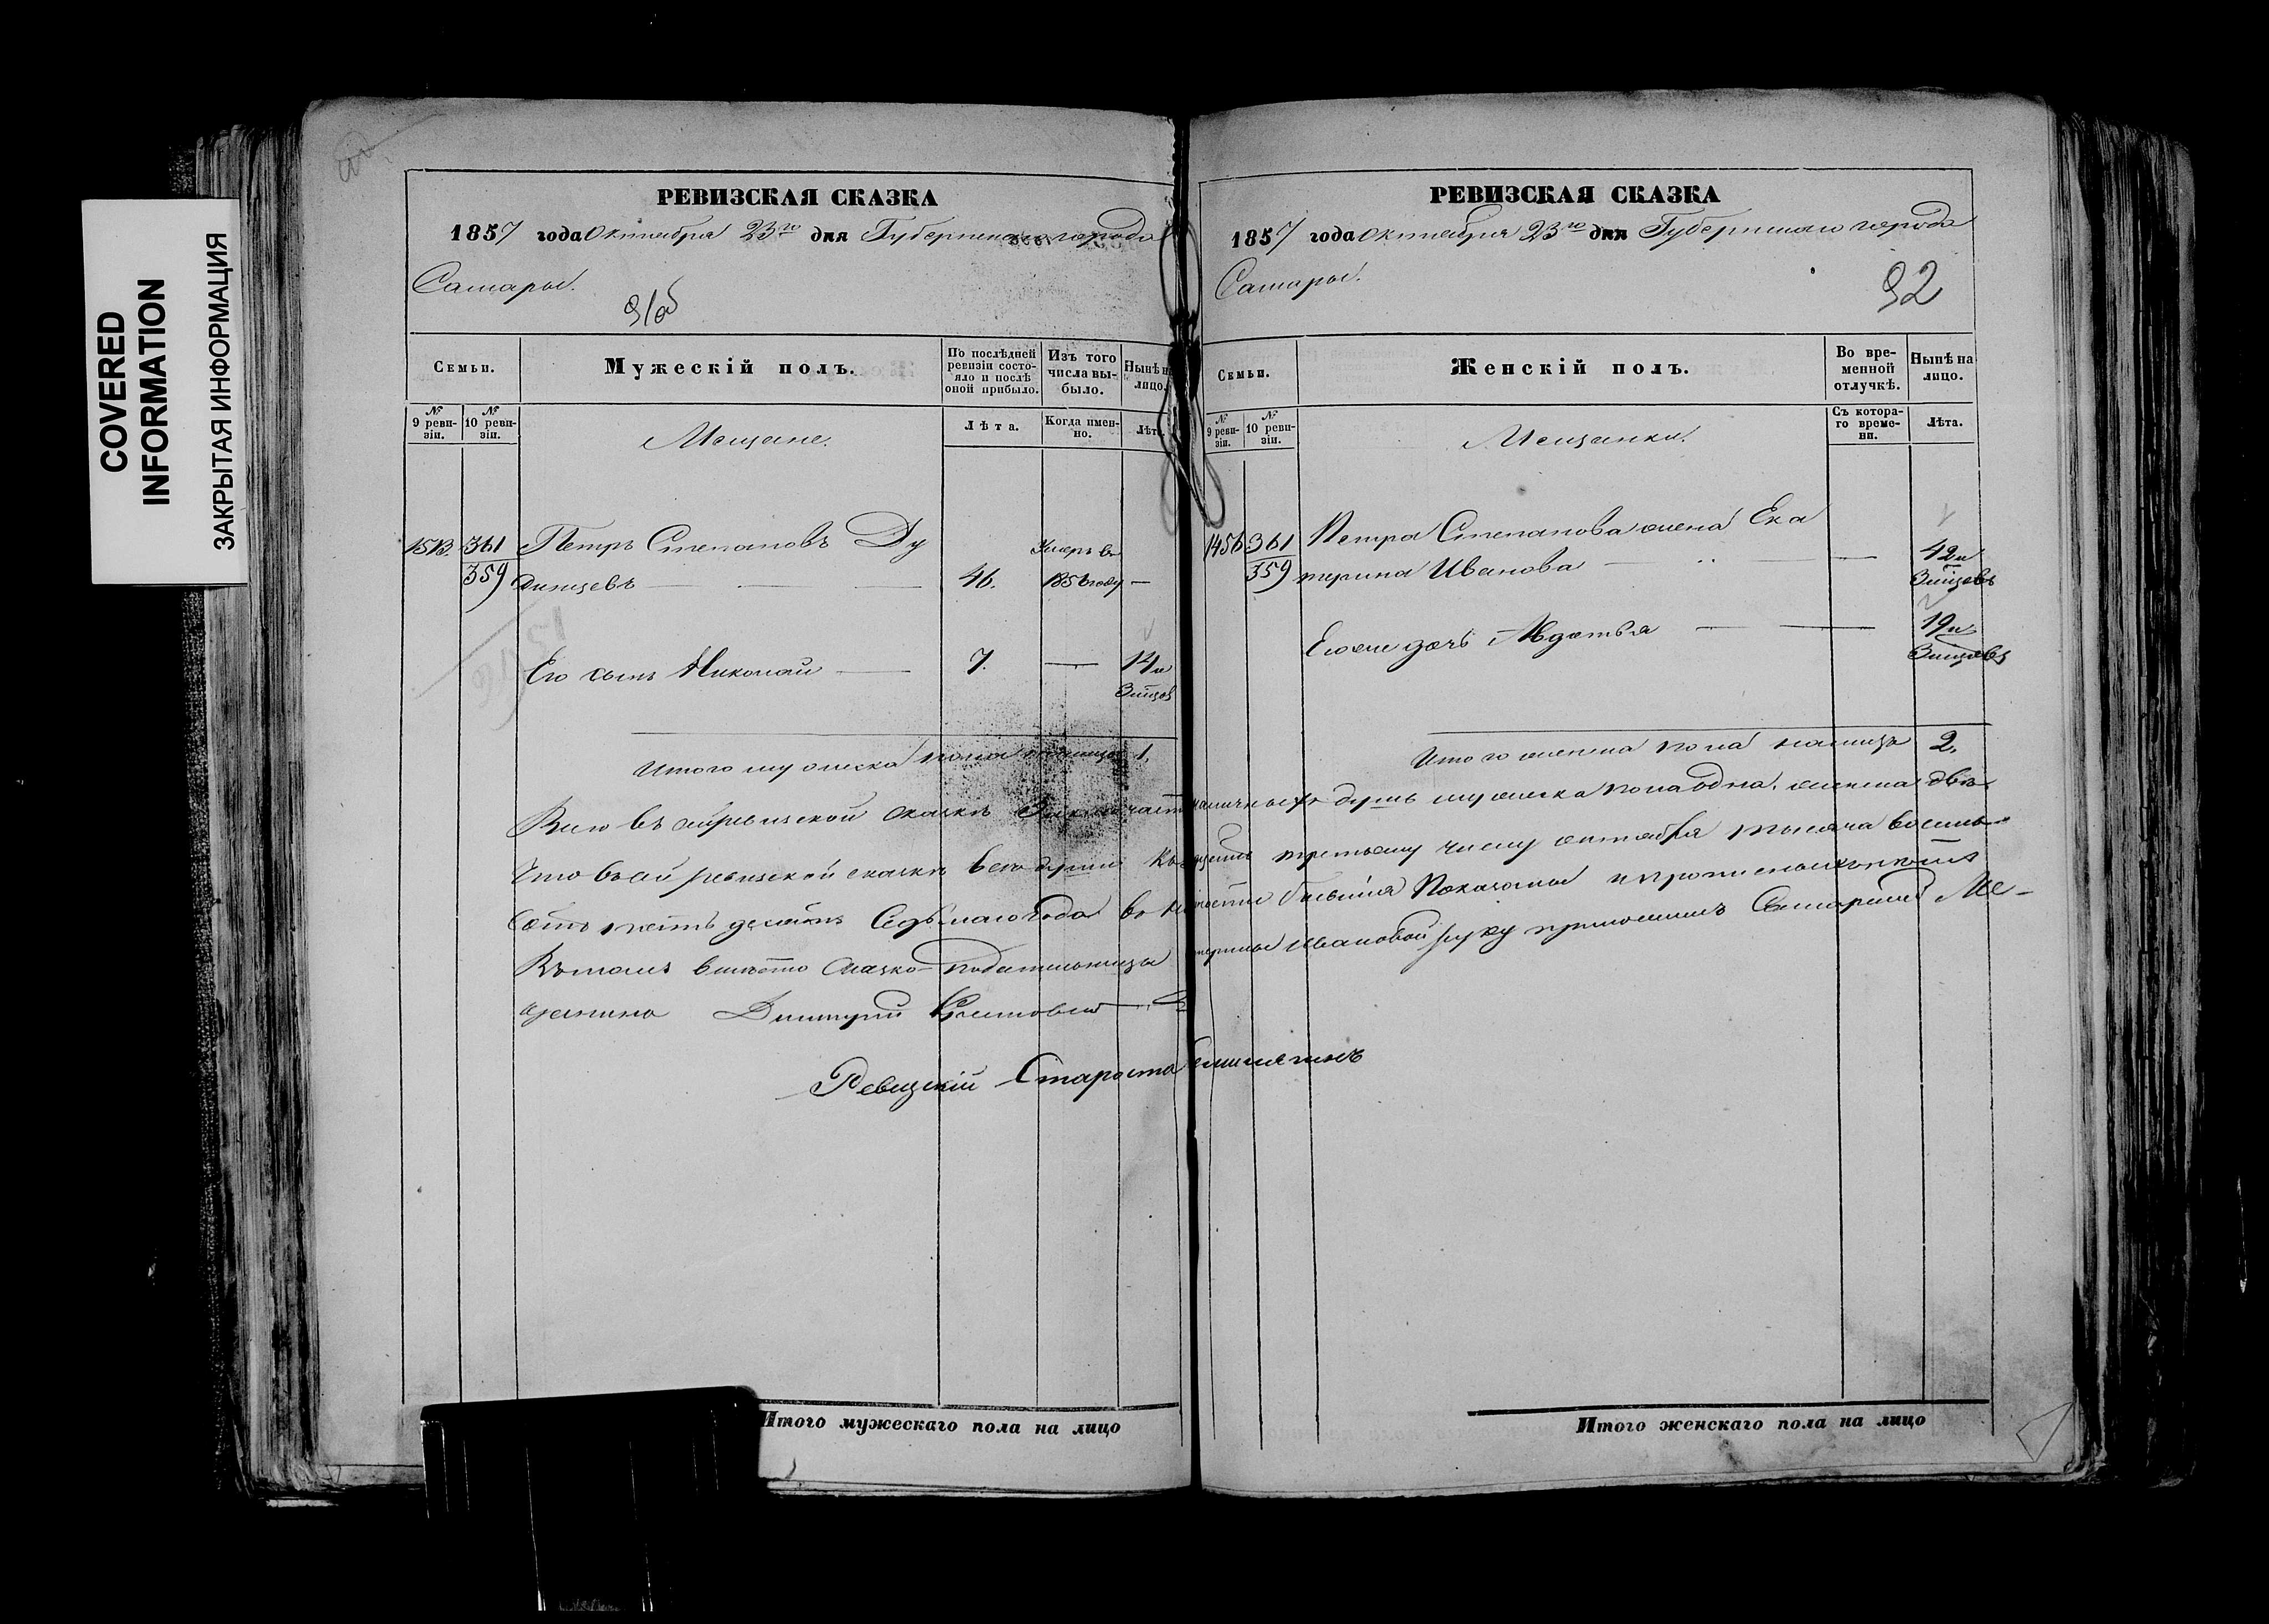 COVERED
INFORMATION
ЗАКРЫТАЯ ИНФОРМАЦИЯ
РЕВИЗСКАЯ СКАЗКА
1857 года Октября 23го дня Губернскаго города
Самары.
91об
Семьи.
Мужескій полъ.
По послѣдней ревизіи состояло и послѣ оной прибыло.
Изъ того числа выбыло.
Нынѣ на лицо.
№ 9 ревизіи.
№ 10 ревизіи.
Мещане.
Лѣта.
Когда именно.
Лѣта
1513. 361 Петръ Степановъ Ду Умеръ въ
359 динцевъ 46. 1856 году —
Его сынъ Николай 7. — 14 и
Итого мужеска пола налицо 1.
РЕВИЗСКАЯ СКАЗКА
1857 года Октября 23го дня Губернскаго города
Самары.
92
Семьи.
Женскій полъ.
Во временной отлучкѣ.
Нынѣ на лицо.
№ 9 ревизіи.
№ 10 ревизіи.
Мещанки.
Съ котораго времени.
Лѣта.
1456 361 Петра Степанова жена Ека
359 терина Иванова — 42 и
Его же дочь Авдотья — 19 и
Итого женска пола налицо 2.
Всего въ сей ревизской сказкѣ наличныхъ душъ мужеска пола одна, женска двѣ
Что въ сей ревизской сказкѣ все души къ третьему числу октября тысяча восемь
сотъ пятьдесятъ седьмаго года показаны
вмѣсто сказко-подательницы Ивановой руку приложилъ Самарской Ме-
щанинъ Дмитрій
Ревизскій Староста
Итого мужескаго пола на лицо
Итого женскаго пола на лицо